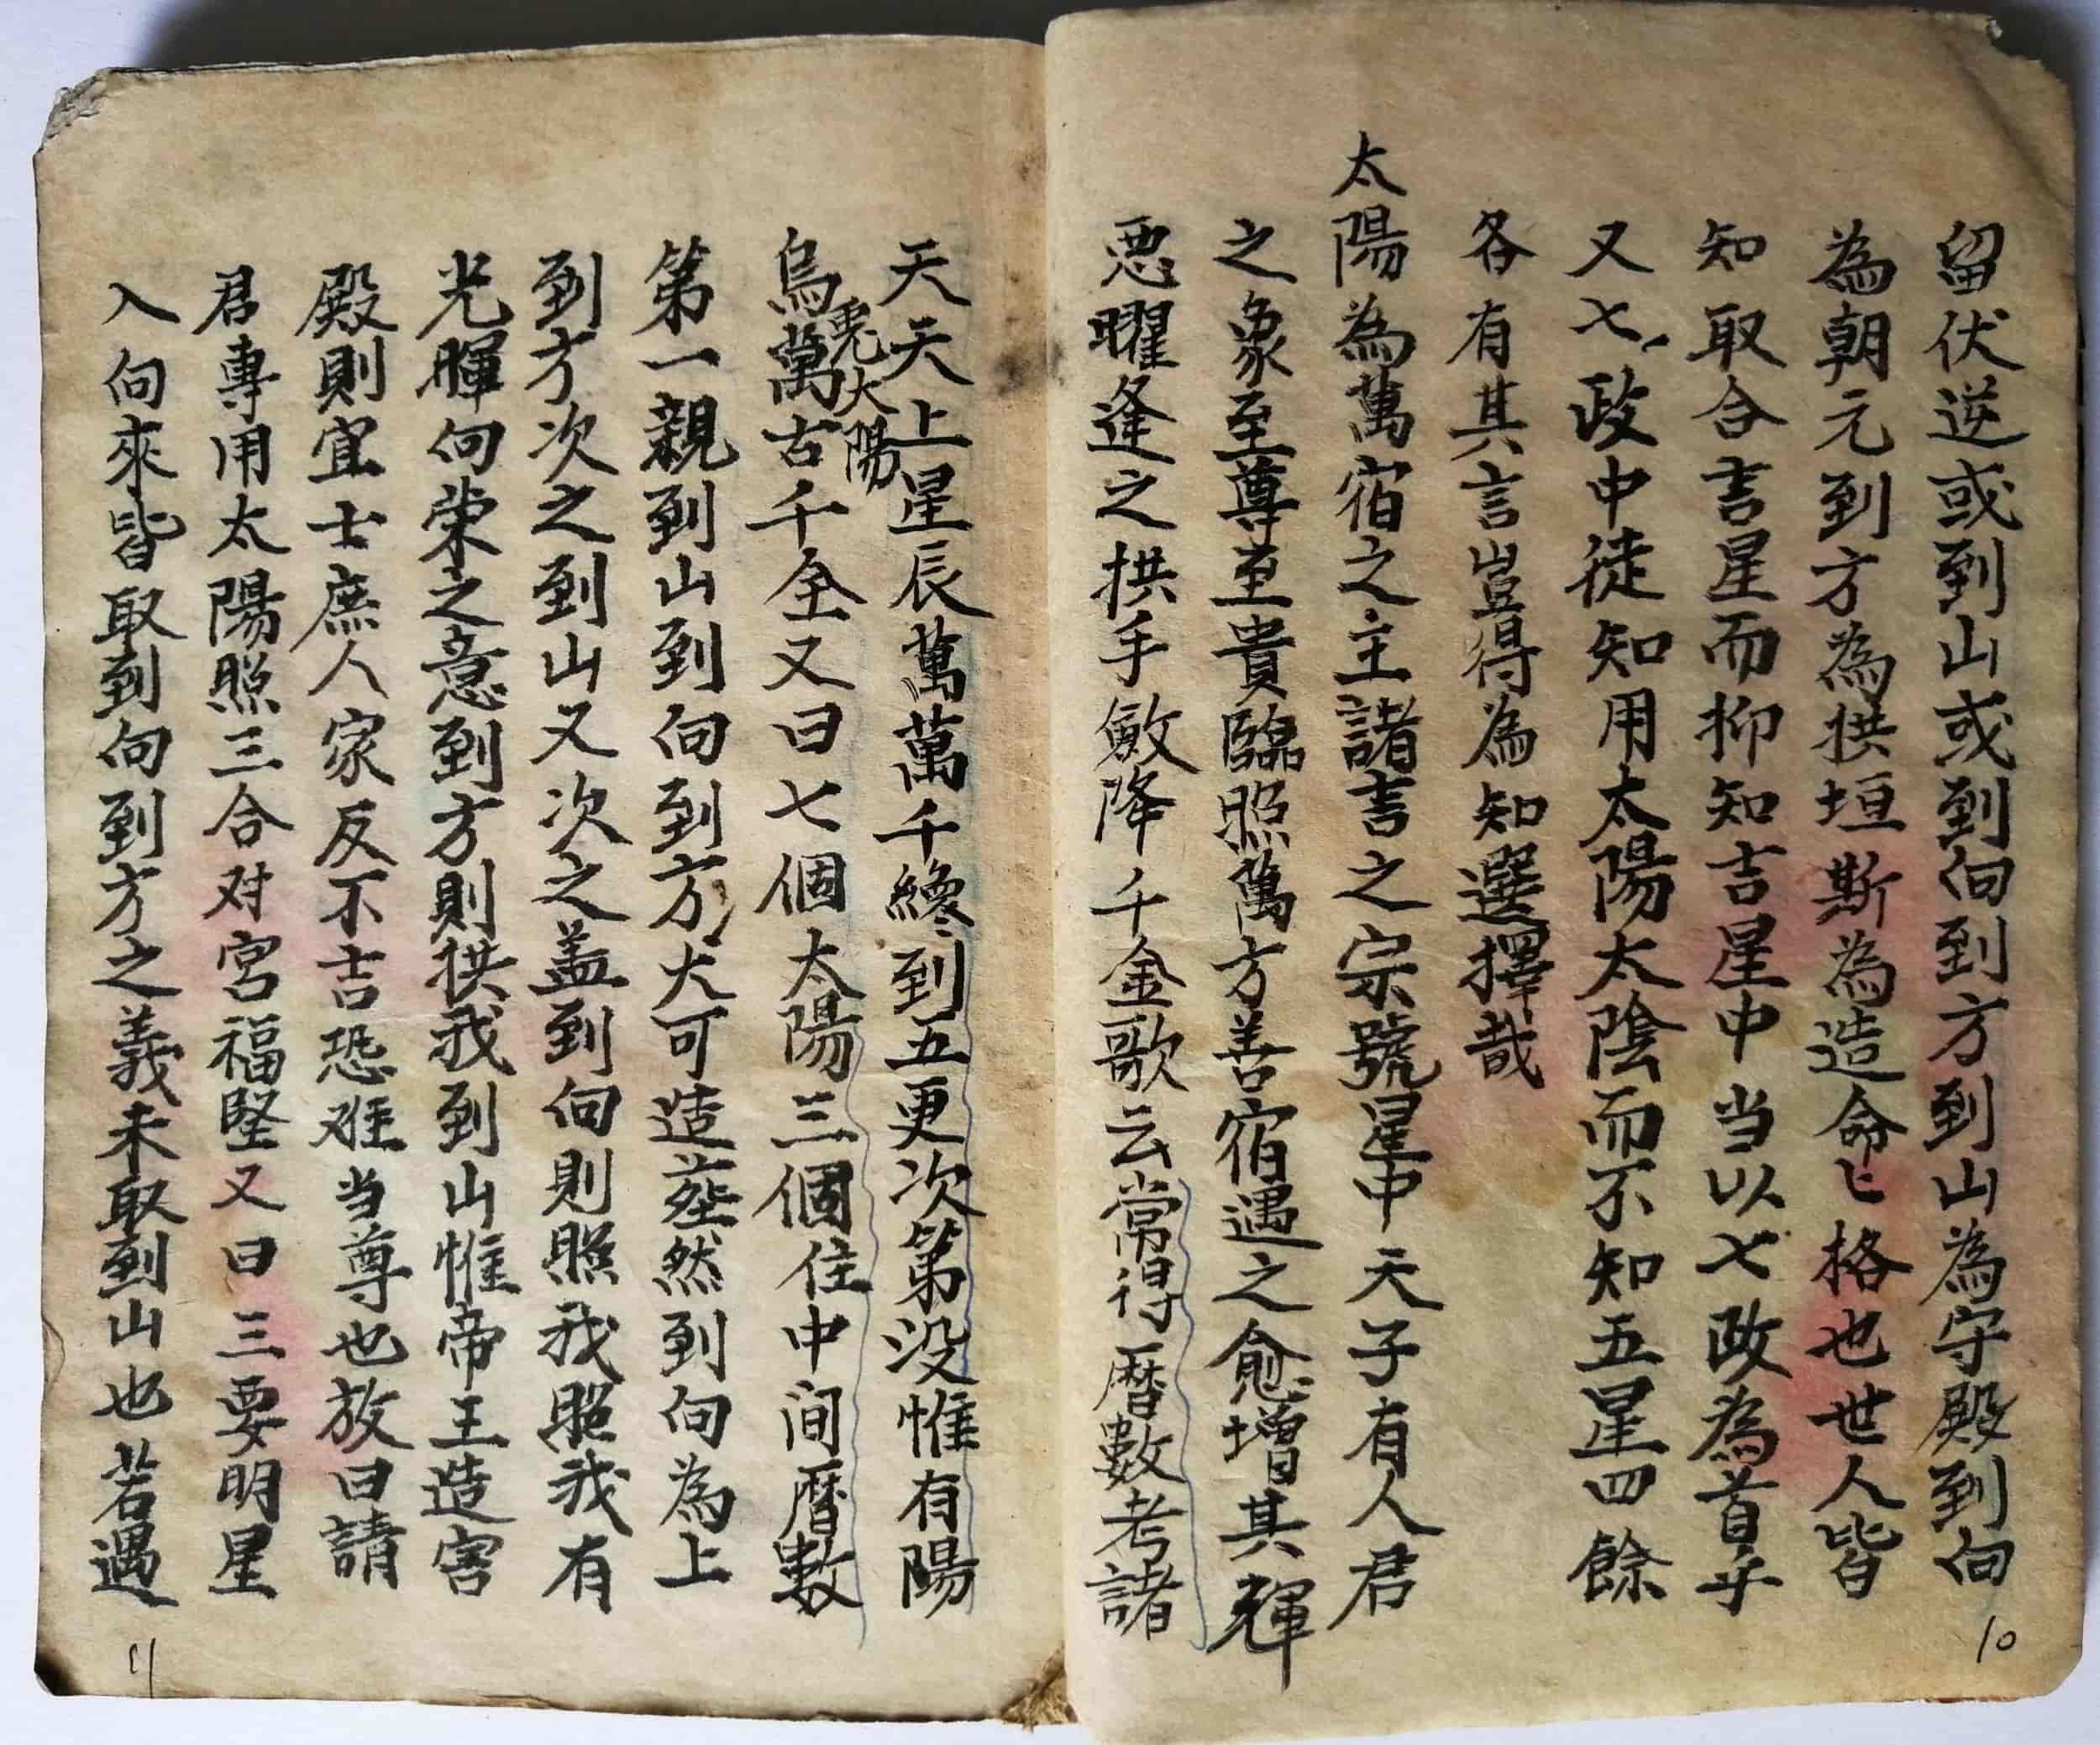 留伏逆或到山或到向到方到山為守殿到向
為朝元到方為拱垣斯為造命匕格也世人皆
知取合吉星而抑知吉星中当以七政為首乎
又七政中徒知用太陽太陰而不知五星四餘
各有其言豈得為知選擇哉
太陽為萬宿之主諸吉之宗號星中天子有人君
之象至尊至貴臨照萬方善宿遇之愈增其輝
恶曜逢之拱手斂降千金歌云常得曆數考諸
10
天天上星辰萬萬千纔到五更次第没惟有陽
烏萬古千全又曰七個太陽三個住中间曆數
兎太陽
第一親到山到向到方大可造塟然到向為上
到方次之到山又次之盖到向則照我照我有
光暉向荣之意到方則拱我到山惟帝王造宫
殿則宜士庶人家反不吉恐难当尊也故曰請
君專用太陽照三合对宮福堅又曰三要明星
入向來皆取到向到方之義未取到山也若遇
11